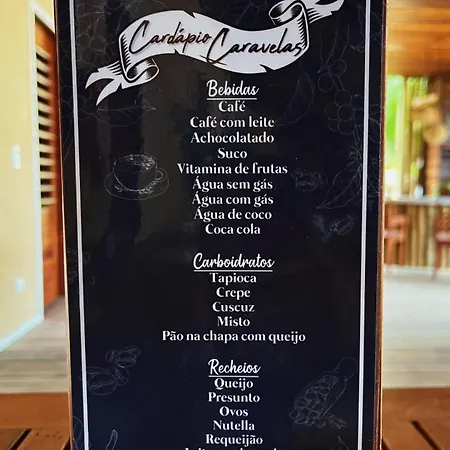 Cardápio Caravelas
Bebidas
Café
Café com leite
Achocolatado
Suco
Vitamina de frutas
Água sem gás
Água com gás
Água de coco
Coca cola
Carboidratos
Tapioca
Crepe
Cuscuz
Misto
Pão na chapa com queijo
Recheios
Queijo
Presunto
Ovos
Nutella
Requeijão